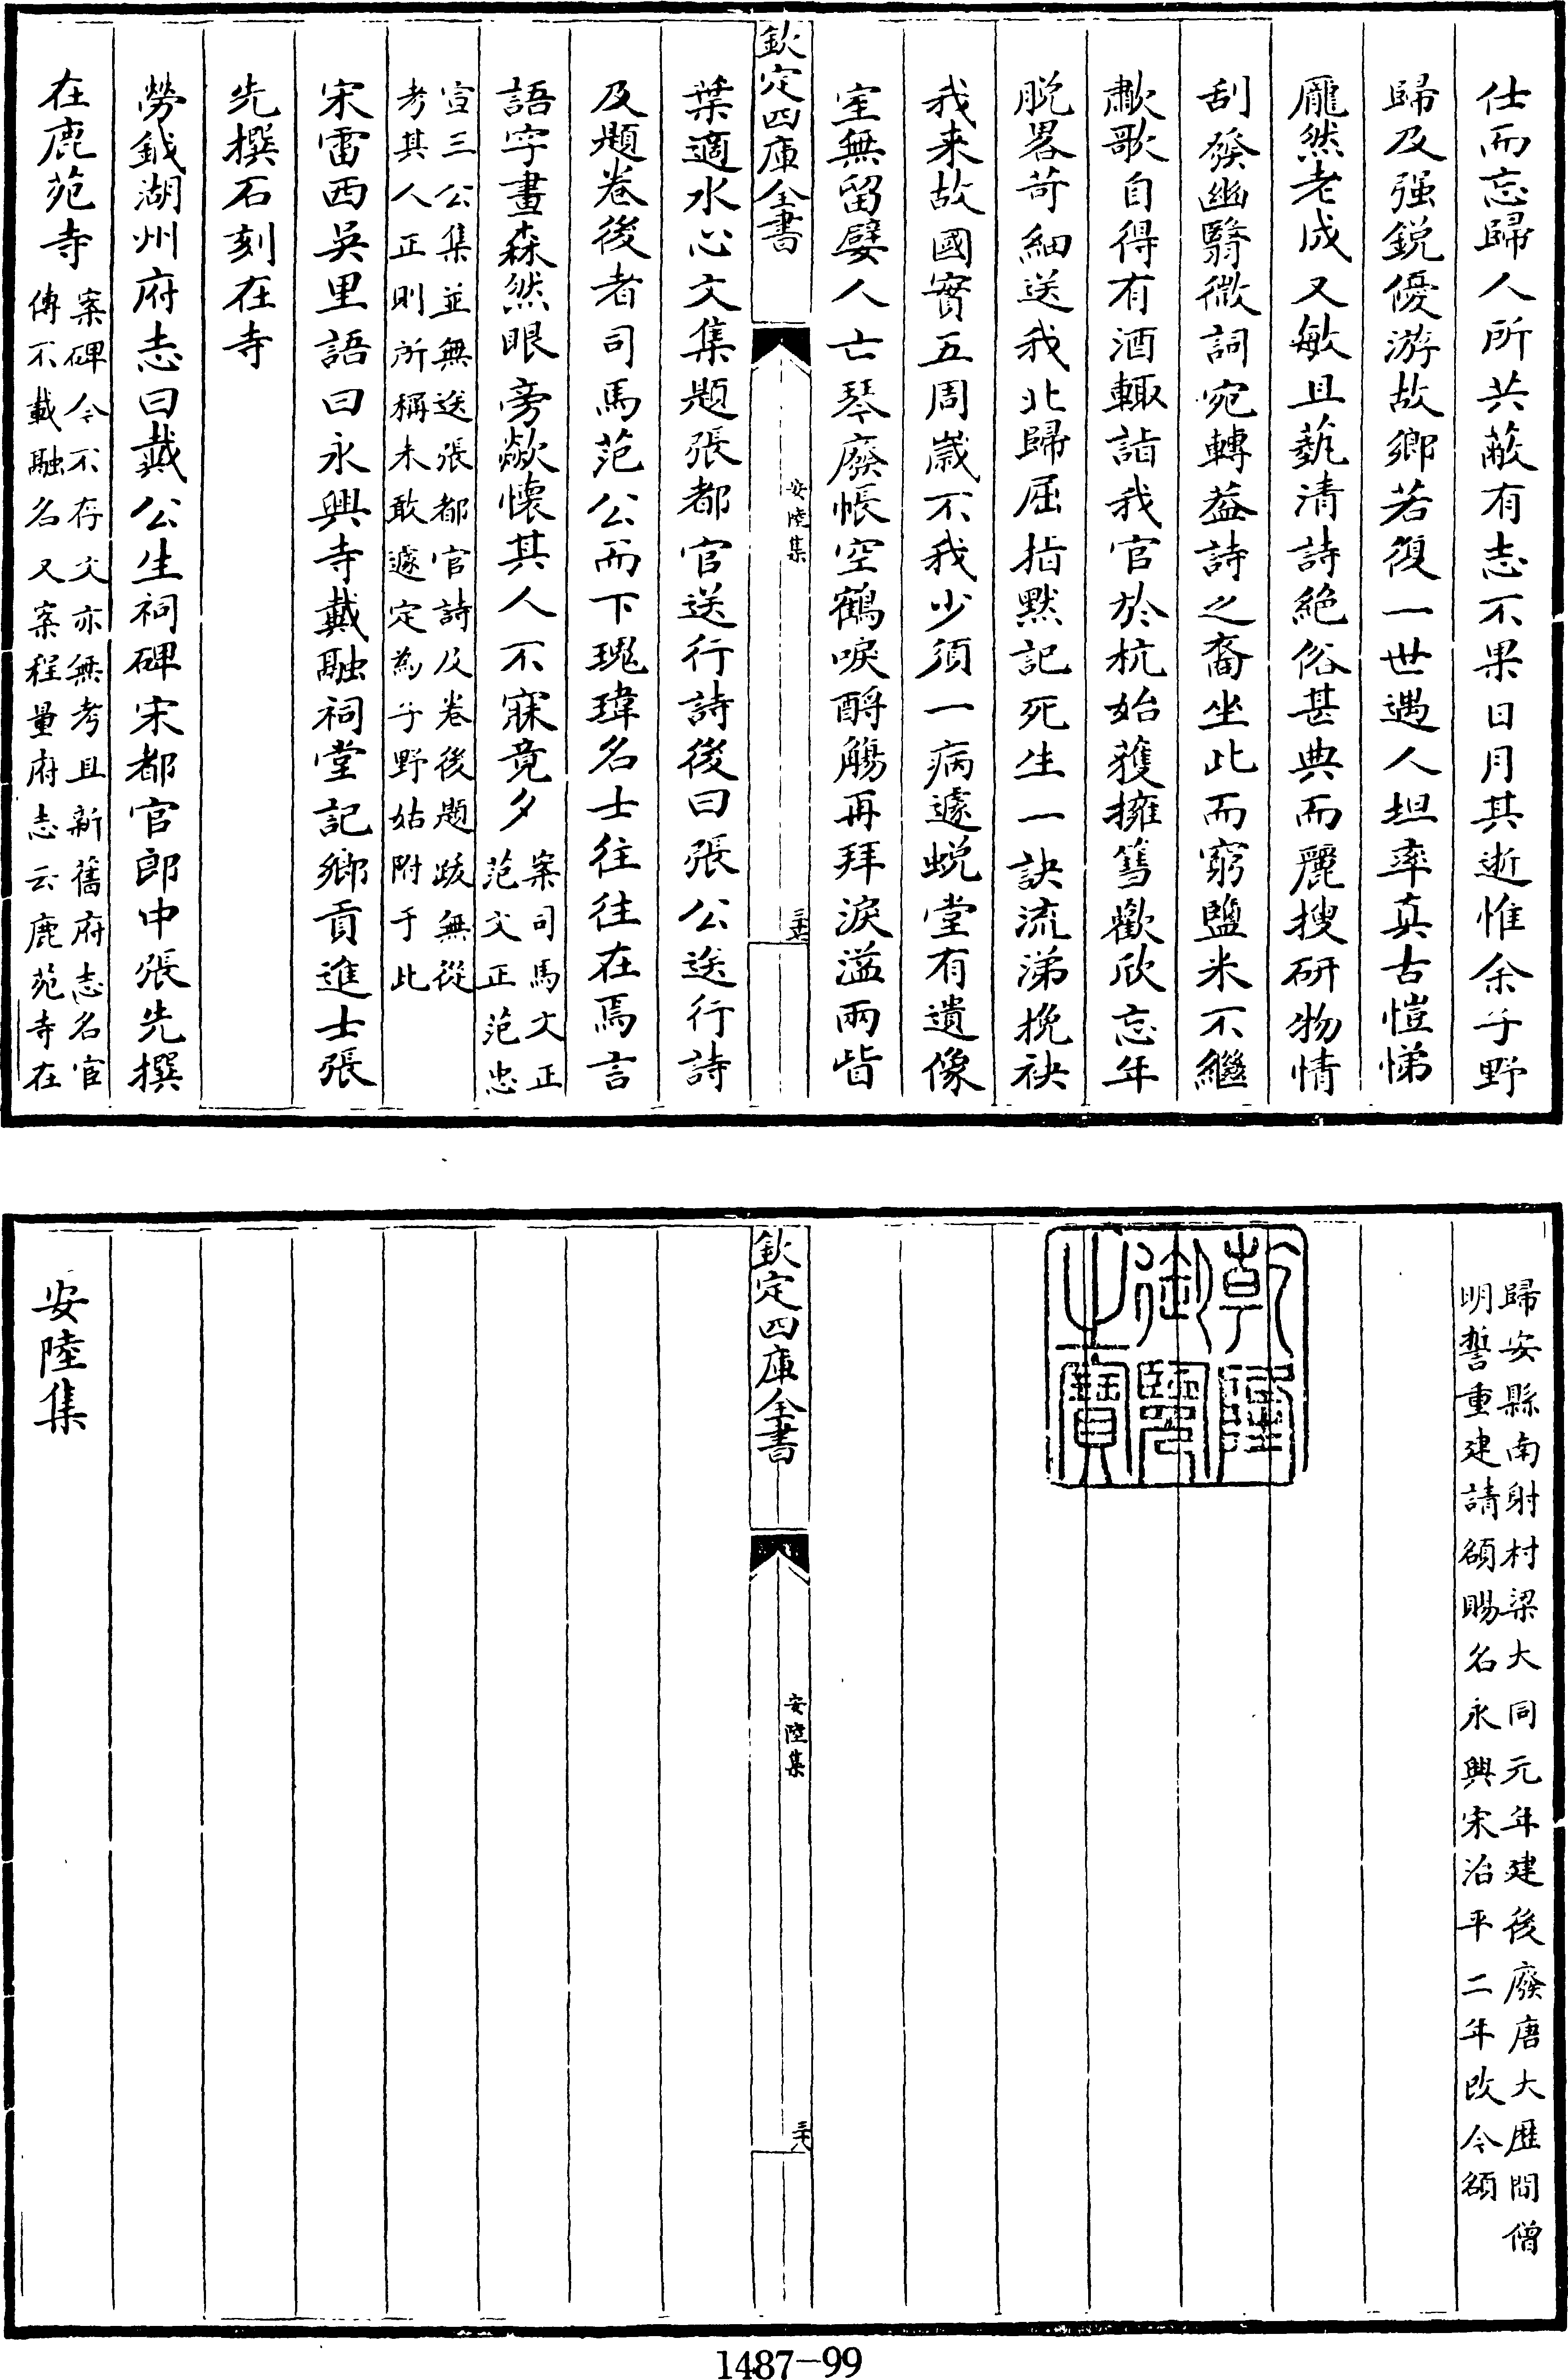 仕而忘歸人所共蔽有志不果日月其逝惟余子野
歸及强鋭優游故鄉若復一世遇人坦率真古愷悌
龎然老成又敏且藝清詩絶俗甚典而麗搜研物情
刮發幽翳微詞宛轉葢詩之裔坐此而窮鹽米不繼
歗歌自得有酒輙詣我官於杭始獲擁篲歡欣忘年
脱畧苛細送我北歸屈指默記死生一訣流涕挽袂
我来故國實五周歲不我少須一病遽蜕堂有遺像
室無留嬖人亡琴廢帳空鶴唳酹觴再拜淚溢兩眥
欽定四庫全書
安陸集
三十七
葉適水心文集題張都官送行詩後曰張公送行詩
及題卷後者司馬范公而下瑰瑋名士往往在焉言
語字畫森然眼旁歘懷其人不寐竟夕案司馬文正
范文正范忠
宣三公集並無送張都官詩及卷後題跋無從
考其人正則所稱未敢遽定為子野姑附于此
宋雷西吳里語曰永興寺戴融祠堂記鄉貢進士張
先撰石刻在寺
勞鉞湖州府志曰戴公生祠碑宋都官郎中張先撰
在鹿苑寺案碑今不存文亦無考且新舊府志名宦
傳不載融名又案程量府志云鹿苑寺在
歸安縣南射村梁大同元年建後廢唐大歴間僧
明誓重建請額賜名永興宋治平二年改今額
乾隆御覽之寶
欽定四庫全書
安陸集
三十八
安陸集
1487-99